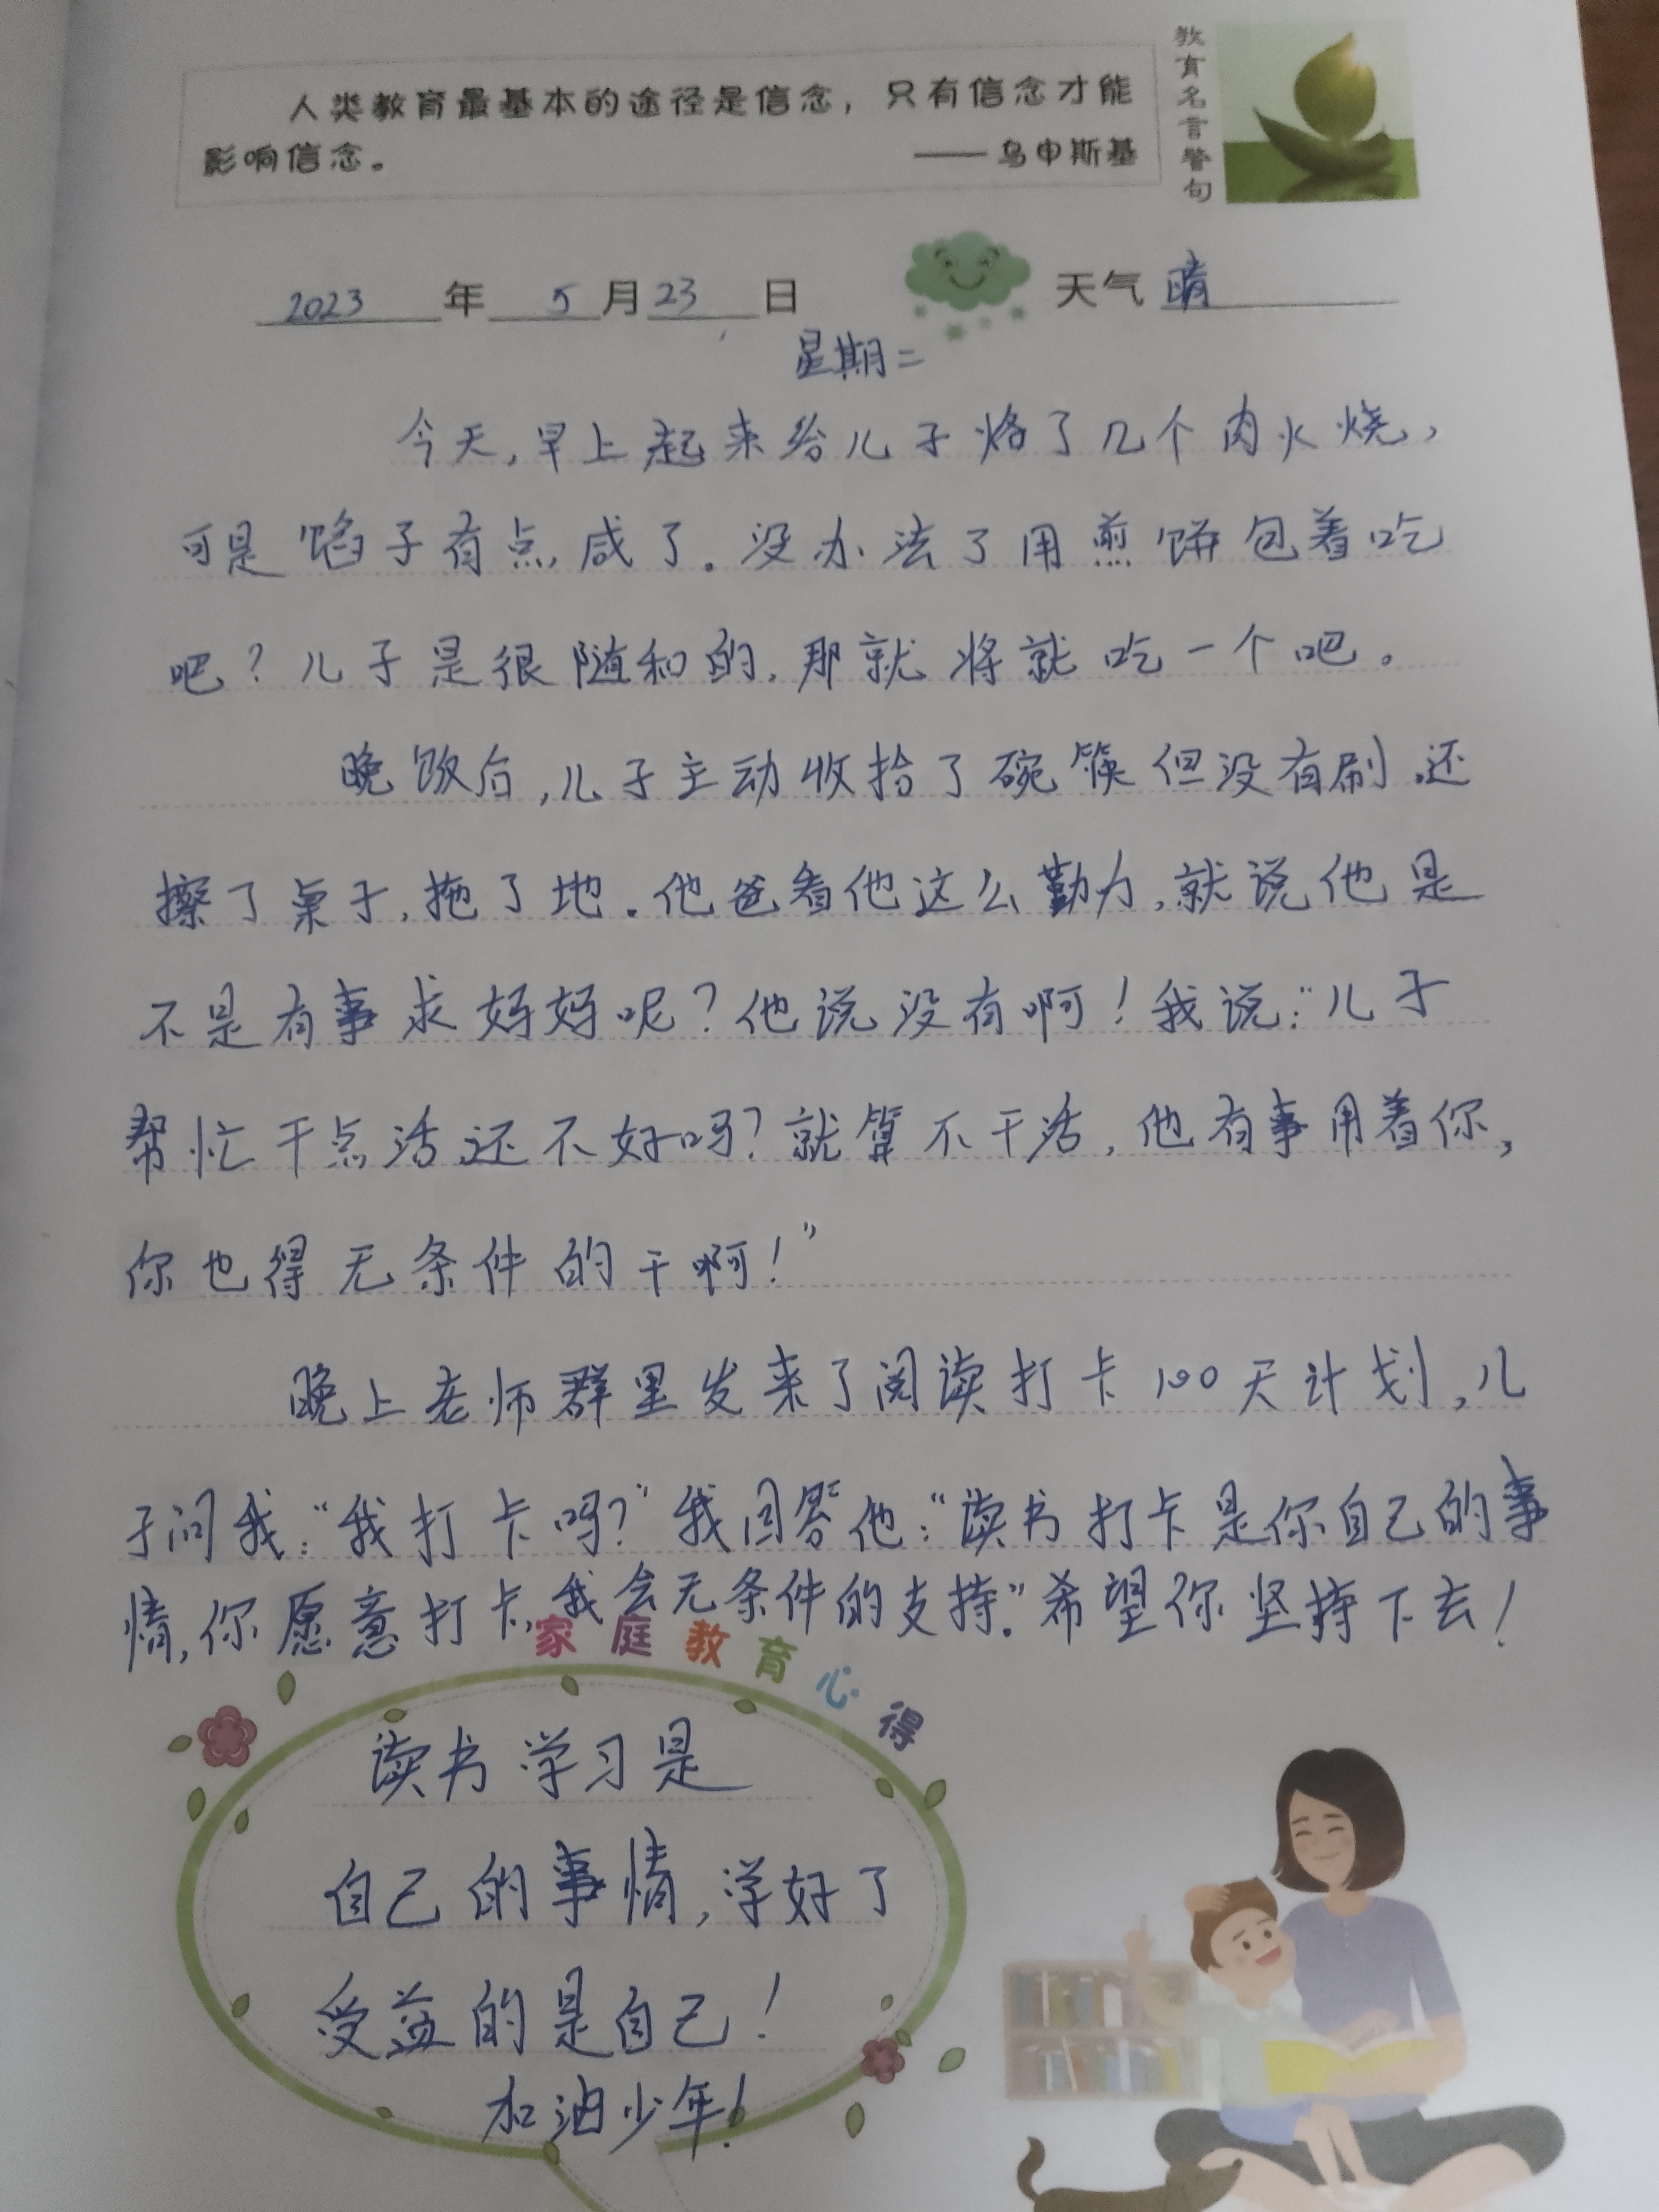 人类教育最基本的途径是信念，只有信念才能
影响信念。
——乌申斯基
教育名言警句
2023年5月23日
天气晴
星期二
今天,早上起来给儿子烙了几个肉火烧,
可是馅子有点咸了.没办法了用煎饼包着吃
吧?儿子是很随和的,那就将就吃一个吧。
晚饭后,儿子主动收拾了碗筷但没有刷,还
擦了桌子,拖了地.他爸看他这么勤力,就说他是
不是有事求妈妈呢?他说没有啊!我说:"儿子
帮忙干点活还不好吗?就算不干活,他有事用着你,
你也得无条件的干啊!"
晚上老师群里发来了阅读打卡100天计划,儿
子问我:"我打卡吗?"我回答他:"读书打卡是你自己的事
情,你愿意打卡,我会无条件的支持."希望你坚持下去!
家庭教育心得
读书学习是
自己的事情,学好了
受益的是自己!
加油少年!